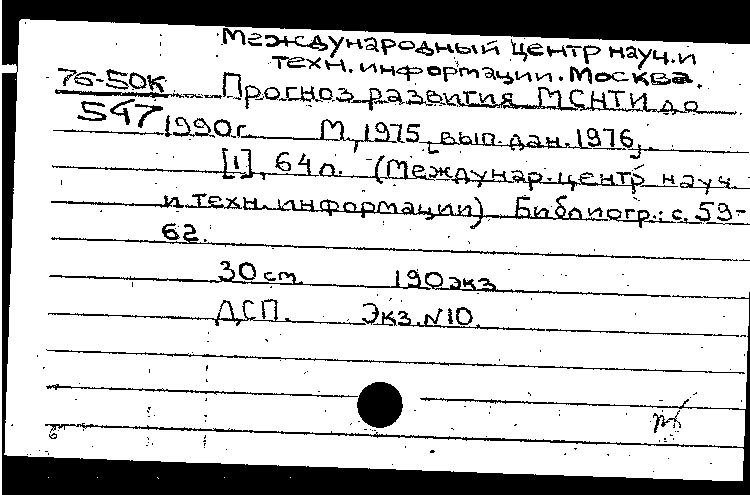 Международный центр науч. и
техн. информации. Москва.
76-50к
547
Прогноз развития МСНТИ до
1990г. М., 1975, [вып. дан. 1976].
[1], 64 л. (Междунар. центр науч.
и техн. информации) Библиогр.: с. 59-
62.
30 см. 190 экз.
ДСП. Экз. N10.